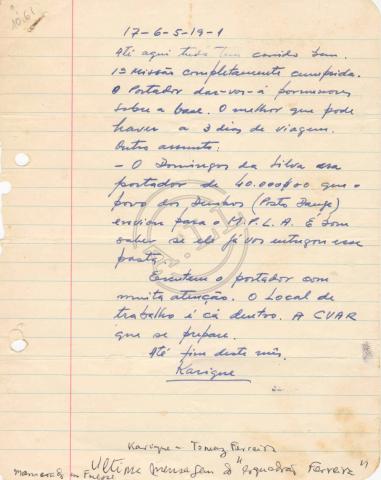 10.61
17-6-5-19-1
Até aqui tudo tem corrido bem.
1ª Missão completamente cumprida.
O Portador dar-vos-á pormenores
sobre a base. O melhor que pode
haver a 3 dias de viagem.
Outro assunto.
- O Domingos da Silva era
portador de 40.000$00 que o
povo dos Dembos (Porto
enviou para o M.P.L.A. É bom
saber se ele já vos entregou esse
Escutem o portador com
muita atenção. O Local de
trabalho é cá dentro. A CVAR
que se prepare.
Até fim deste mês.
Karique
Karique - Tomaz Ferreira
Ultima mensagem do "esquadrão Ferreira"